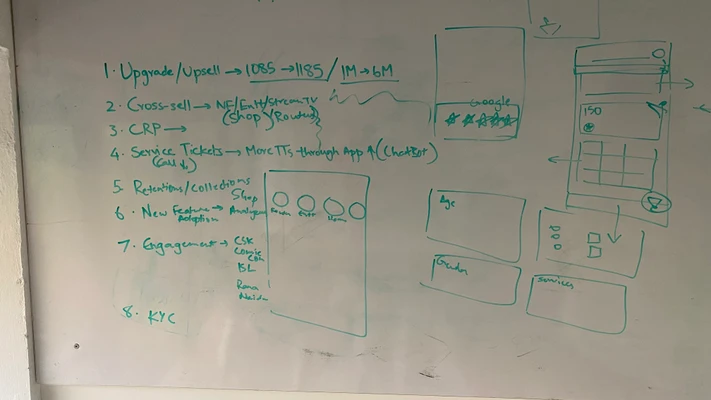 1. Upgrade/Upsell → 1085 → 1185 / 1M → 6M
2. Cross-sell → NF/Entt/StreamTV
(Shop)/Router
3. CRP →
4. Service Tickets → More TTs through App ↑ (ChatBot)
(Call ↓)
5. Retentions/Collections
6. New Feature → Shop
Adoption
7. Engagement → CSK
Comic
Con
ISL
Rana
Naidu
8. KYC
Google
150
Age
Gender
Services